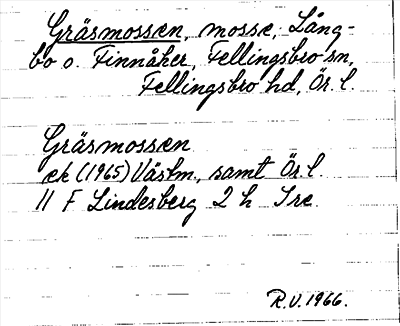 Gräsmossen, mosse, Lång-
bo o. Finnåker, Fellingsbro sn,
Fellingsbro hd, Ör. l.
Gräsmossen
ek (1965) Västm., samt Ör. l.
11 F Lindesberg 2 h Tre
R.V. 1966.